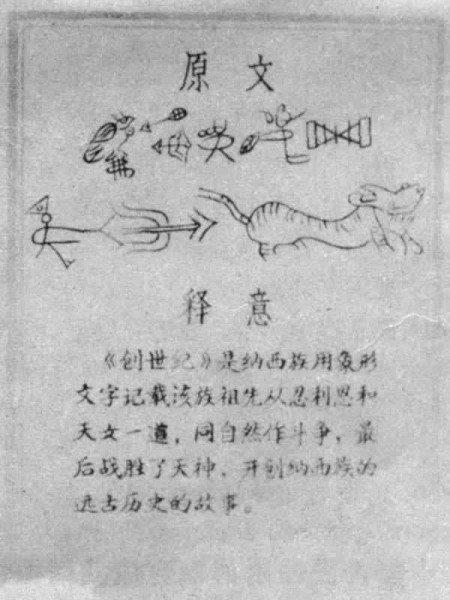 原文
释意
《创世纪》是纳西族用象形
文字记载该族祖先从忍利恩和
天女一道，同自然作斗争，最
后战胜了天神、开创纳西族的
远古历史的故事。